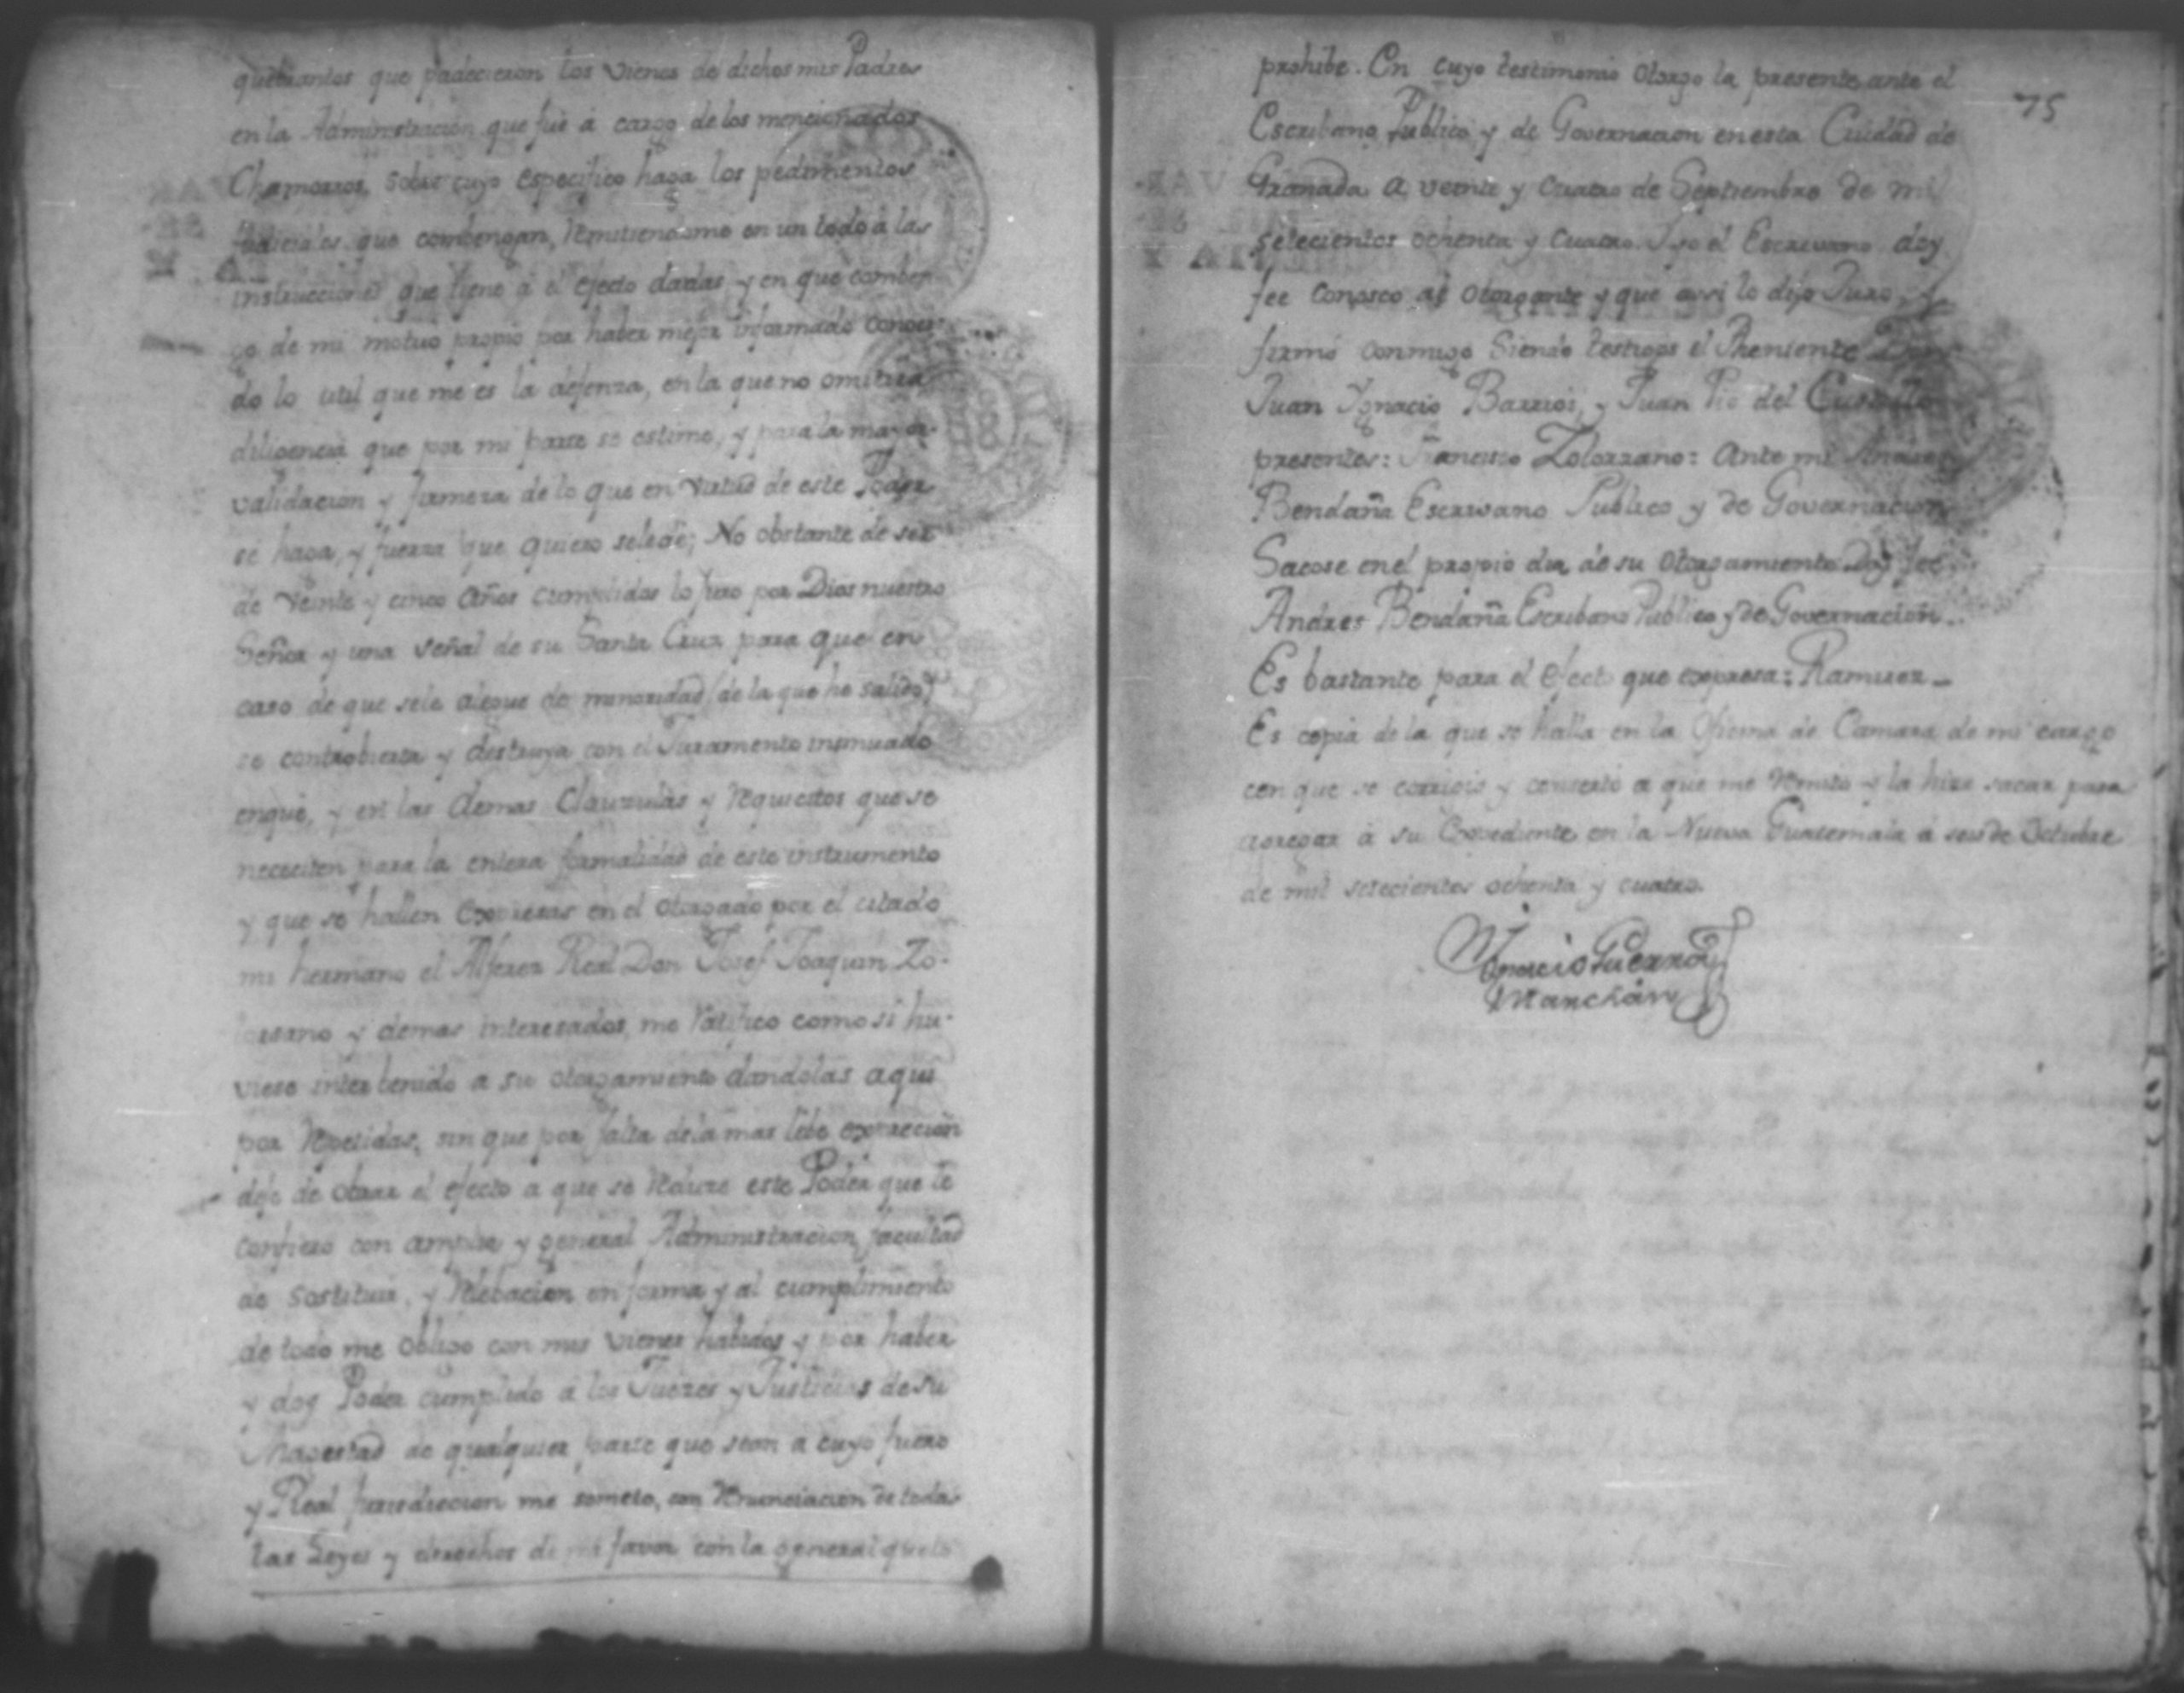 quebrantos que padecieron los vienes de dichos mis Padres
en la Administracion que fué á cargo de los mencionados
Chamorros, sobre cuyo especifico haga los pedimentos
judiciales que combengan, remitiendome en un todo á las
instrucciones que tiene á el efecto dadas y en que comben-
go de mi motuo propio por haber mejor informado conoci-
do lo util que me es la defenza, en la que no omitirá
diligencia que por mi parte se estime, y para la mayor
validacion y firmeza de lo que en virtud de este Poder
se haga, y fuerza que quiero sele dé; No obstante de ser
de veinte y cinco años cumplidos lo juro por Dios nuestro
Señor y una señal de su Santa Cruz para que en
caso de que sele alegue de minoridad (de la que he salido)
se controbierta y destruya con el Juramento insinuado
enque, y en las demas Clauzulas y requicitos que se
necesiten para la entera formalidad de este instrumento
y que se hallen expresas en el otorgado por el citado
mi hermano el Alferez Real Don Josef Joaquin Zo-
lorsano y demas interesados, me ratifico como si hu-
viese interbenido a su otorgamiento dandolas aqui
por repetidas, sin que por falta dela mas lebe exprecion
deje de obrar el efecto a que se reduze este Poder que le
confiero con amplia y general Administracion facultad
de sostituir, y relebacion en forma y al cumplimiento
de todo me obligo con mis vienes habidos y por haber
y doy Poder cumplido á los Juezes y Justicias de su
Magestad de qualquier parte que sean a cuyo fuero
y Real jurisdiccion me someto, con renunciacion de todas
las Leyes y derechos de mi favor con la general que lo
75
prohibe. En cuyo testimonio otorgo la presente ante el
Escribano Publico y de Governacion en esta Ciudad de
Granada a veinte y cuatro de Septiembre de mil
setecientos ochenta y cuatro. Iyo el Escrivano doy
fee conosco al otorgante y que assi lo dijo Juro, y
firmó conmigo siendo testigos el Theniente Don
Juan Ygnacio Barrios, y Juan Pio del Castillo
presentes: Francisco Zolorzano: Ante mi Andres
Bendaña Escrivano Publico y de Governacion
Sacose en el propio dia de su otorgamiento Doy fee
Andres Bendaña Escribano Publico y de Governacion..
Es bastante para el efecto que expresa: Ramirez_
Es copia de la que se halla en la Oficina de Camara de mi cargo
con que se corrigio y concertó a que me remito y la hize sacar para
agregar á su Expediente en la Nueva Guatemala á seis de Octubre
de mil setecientos ochenta y cuatro.
Ygnacio Guerra y
Marchán